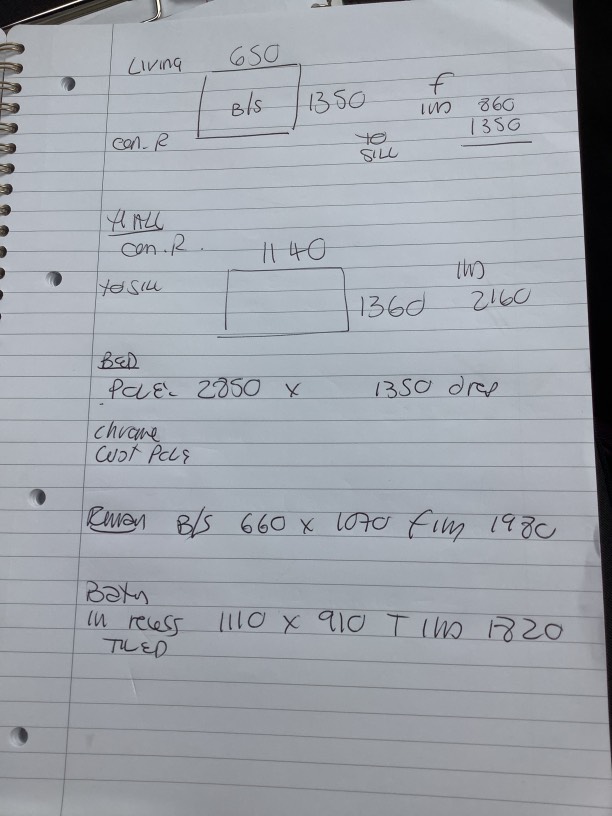 Living 650
B/S 1350 f
1W 860
1350
con. R TO
SILL
HALL
con. R. 1140
TO SILL 1360 1W
2160
BED
POLE. 2850 x 1350 drop
chrome
POLE
B/S 660 x 1070 1980
Bath
in recess 1110 x 910 T 1W 1820
TILED